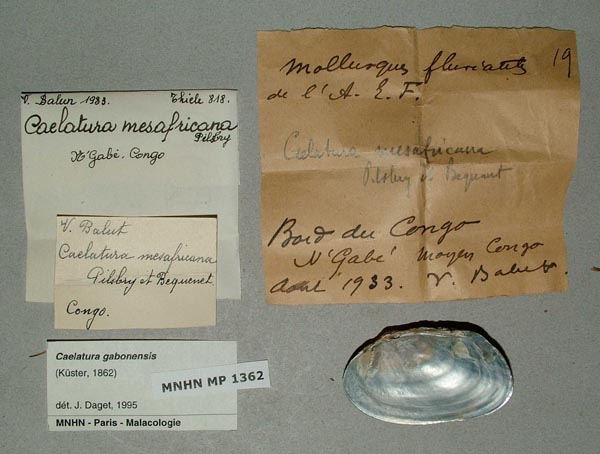 V. Balun 1933. Thiele 818.
Caelatura mesafricana
Pilsbry
N'Gabé. Congo
V. Balut
Caelatura mesafricana
Pilsbry et Bequenet
Congo.
Caelatura gabonensis
(Küster, 1862)
dét. J. Daget, 1995
MNHN - Paris - Malacologie
MNHN MP 1362
Mollusques fluviatils 19
de l'A. E. F.
Celatura mesafricana
Pilsbry et Bequaert
Bord du Congo
N'Gabé Moyen Congo
Août 1933. V. Balut.